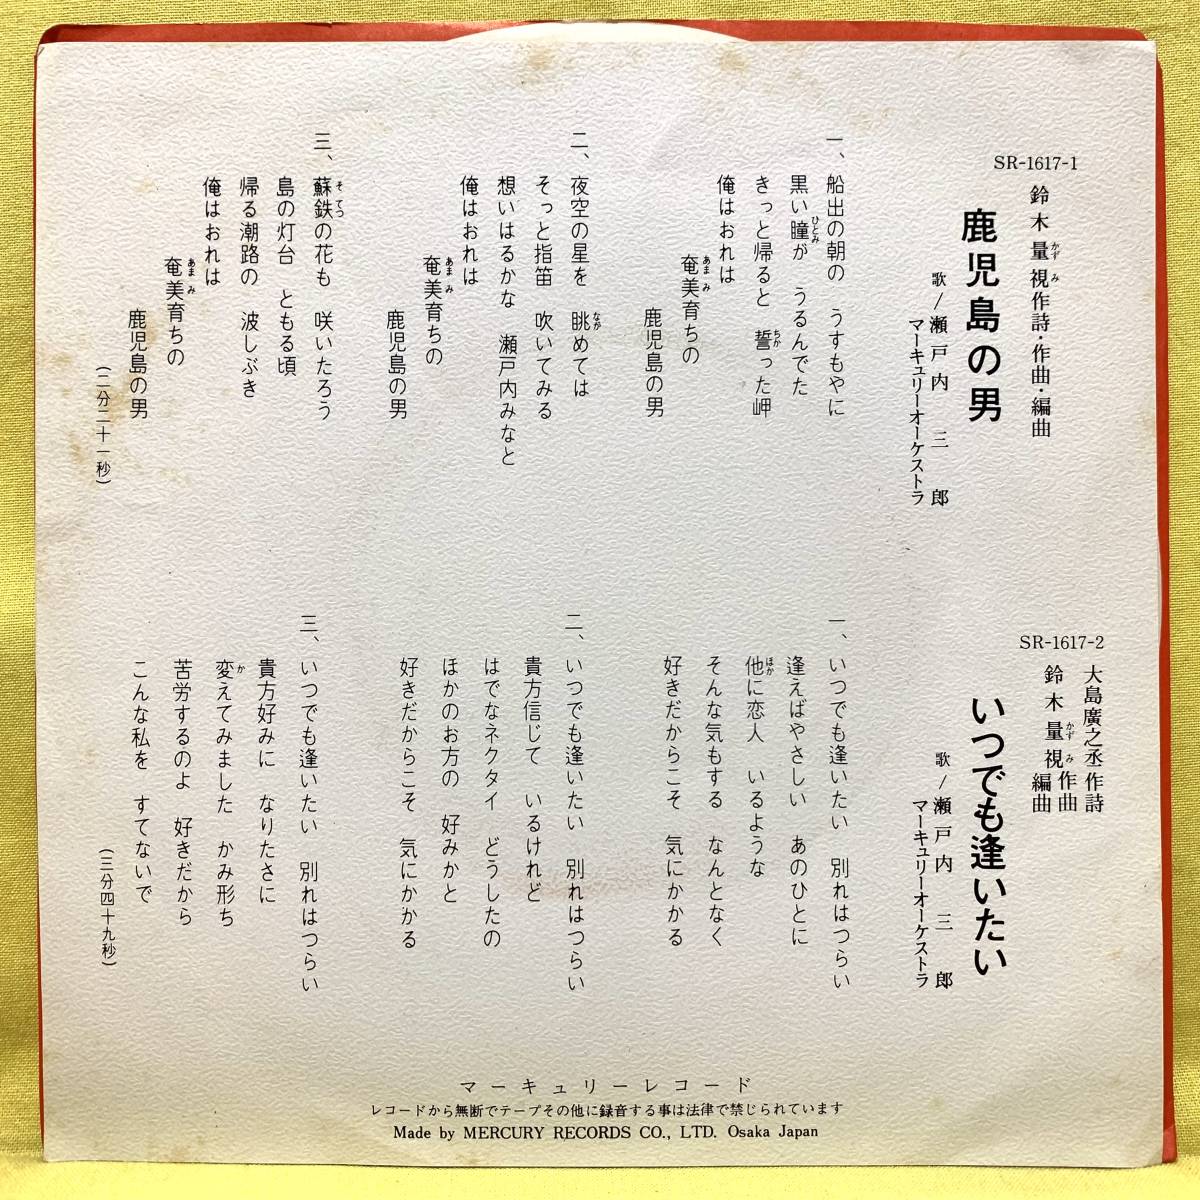 SR-1617-1
鈴木量視作詩・作曲・編曲
かずみ
鹿児島の男
歌/瀬戸内三郎
マーキュリーオーケストラ
一、船出の朝の うすもやに
黒い瞳が うるんでた
ひとみ
きっと帰ると 誓った岬
ちか
俺はおれは
奄美育ちの
あまみ
鹿児島の男
二、夜空の星を 眺めては
なが
そっと指笛 吹いてみる
想いはるかな 瀬戸内みなと
俺はおれは
奄美育ちの
あまみ
鹿児島の男
三、蘇鉄の花も 咲いたろう
そてつ
島の灯台 ともる頃
帰る潮路の 波しぶき
俺はおれは
奄美育ちの
あまみ
鹿児島の男
(二分二十一秒)
SR-1617-2
大島廣之丞作詩
鈴木量視作曲
かずみ
編曲
いつでも逢いたい
歌/瀬戸内三郎
マーキュリーオーケストラ
一、いつでも逢いたい 別れはつらい
逢えばやさしい あのひとに
他に恋人 いるような
ほか
そんな気もする なんとなく
好きだからこそ 気にかかる
二、いつでも逢いたい 別れはつらい
貴方信じて いるけれど
はでなネクタイ どうしたの
ほかのお方の 好みかと
好きだからこそ 気にかかる
三、いつでも逢いたい 別れはつらい
貴方好みに なりたさに
変えてみました かみ形ち
か
苦労するのよ 好きだから
こんな私を すてないで
(三分四十九秒)
マーキュリーレコード
レコードから無断でテープその他に録音する事は法律で禁じられています
Made by MERCURY RECORDS CO., LTD. Osaka Japan